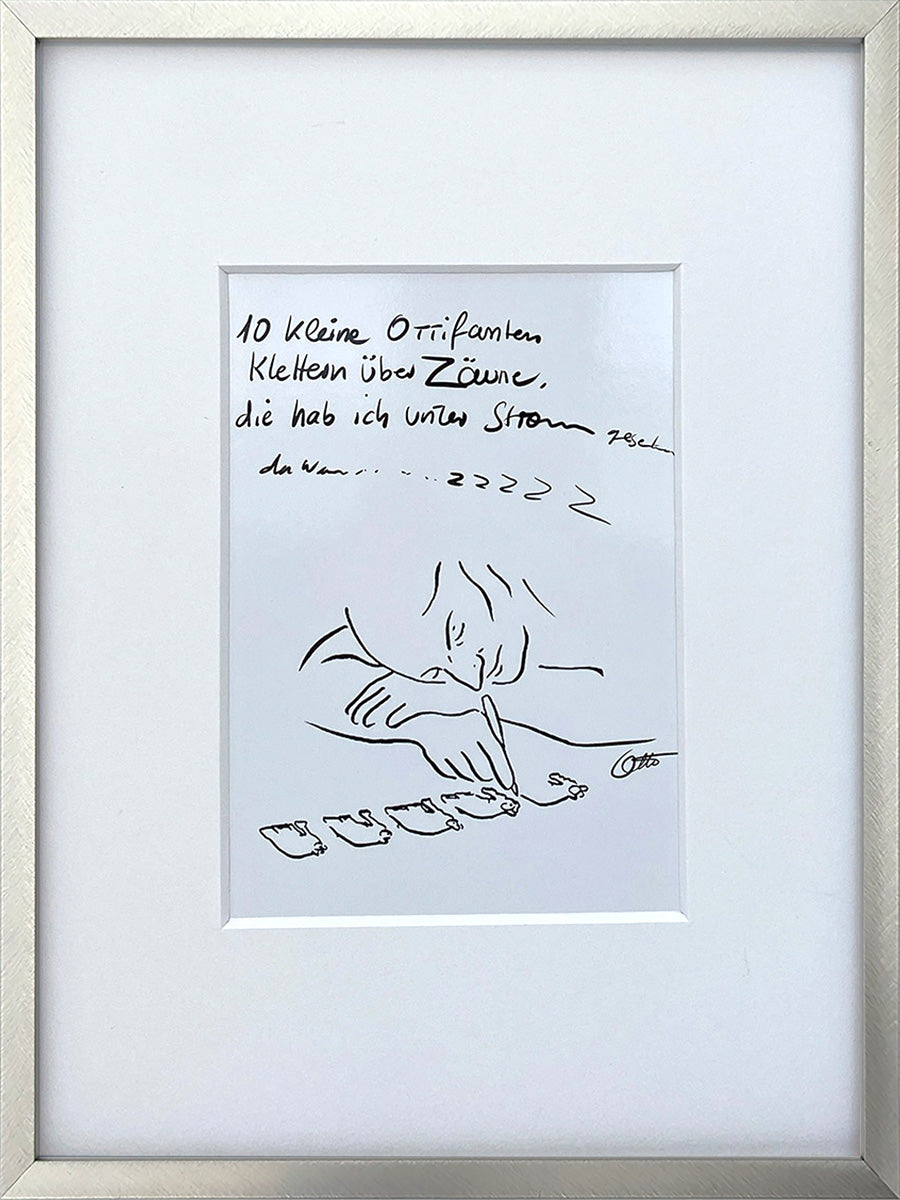 10 kleine Ottifanten
klettern über Zäune,
die hab ich unter Strom gesetz
da war.. . . . .. zzzzz
Otto